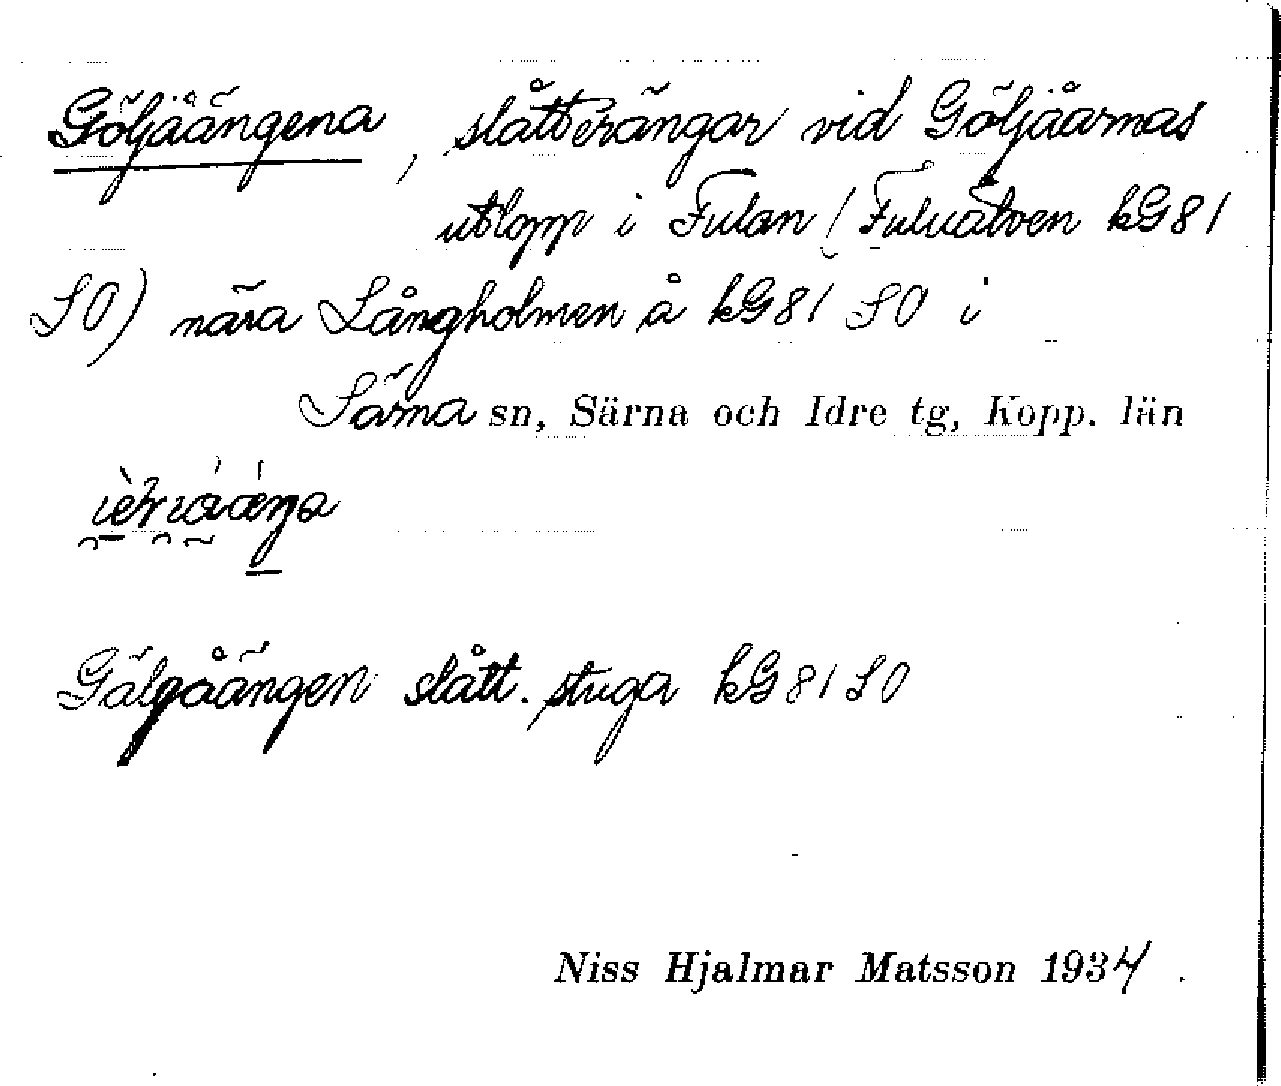 Göljåängena, slåtterängar vid Göljåarnas
utlopp i Fulan (Fuluälven kG81
SO) nära Långholmen å kG81 SO i
Särna sn, Särna och Idre tg, Kopp. län
Gälgåängen slått. stuga kG81 SO
Niss Hjalmar Matsson 1934.